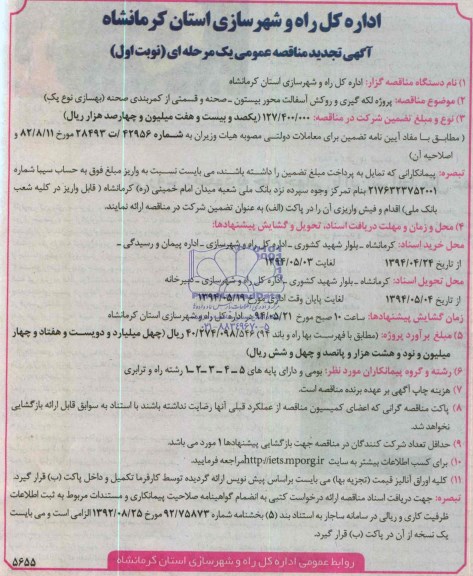 اداره کل راه و شهرسازی استان کرمانشاه
آگهی تجدید مناقصه عمومی یک مرحله ای (نوبت اول)
۱) نام دستگاه مناقصه گزار: اداره کل راه و شهرسازی استان کرمانشاه
۲) موضوع مناقصه: پروژه لکه گیری و روکش آسفالت محور بیستون ـ صحنه و قسمتی از کمربندی صحنه (بهسازی نوع یک)
۳) نوع و مبلغ تضمین شرکت در مناقصه: ۱۲۷/۴۰۰/۰۰۰ (یکصد و بیست و هفت میلیون و چهارصد هزار ریال)
( مطابق با مفاد آیین نامه تضمین برای معاملات دولتی مصوبه هیات وزیران به شماره ۴۲۹۵۶ /ت ۲۸۴۹۳ مورخ ۸۲/۸/۱۱ و
اصلاحیه آن)
تبصره: پیمانکارانی که تمایل به پرداخت مبلغ تضمین را داشته باشند، می بایست نسبت به واریز مبلغ فوق به حساب سیبا شماره
۲۱۷۶۳۲۳۷۵۲۰۰۱ بنام تمرکز وجوه سپرده نزد بانک ملی شعبه میدان امام خمینی (ره) کرمانشاه ( قابل واریز در کلیه شعب
بانک ملی) اقدام و فیش واریزی آن را در پاکت (الف) به عنوان تضمین شرکت در مناقصه ارائه نمایند.
۴) محل و زمان و مهلت دریافت اسناد، تحویل و گشایش پیشنهادها:
محل خرید اسناد: کرمانشاه ـ بلوار شهید کشوری ـ اداره کل راه و شهرسازی ـ اداره پیمان و رسیدگی ـ
از تاریخ ۱۳۹۴/۰۴/۲۴ لغایت ۱۳۹۴/۰۵/۰۳
محل تحویل اسناد: کرمانشاه ـ بلوار شهید کشوری ـ اداره کل راه و شهرسازی ـ دبیرخانه
از تاریخ ۱۳۹۴/۰۵/۰۴ لغایت پایان وقت اداری مورخ ۱۳۹۴/۰۵/۱۹
زمان گشایش پیشنهادها: ساعت ۱۰ صبح مورخ ۹۴/۰۵/۲۱ در اداره کل راه و شهرسازی استان کرمانشاه
۵) مبلغ برآورد پروژه: (مطابق با فهرست بها راه و باند ۹۴) ۴۰/۲۷۴/۰۹۸/۵۴۶ ریال (چهل میلیارد و دویست و هفتاد و چهار
میلیون و نود و هشت هزار و پانصد و چهل و شش ریال)
۶) رشته و گروه پیمانکاران مورد نظر: بومی و دارای پایه های ۵ـ۴ـ۳ـ۲ـ۱ رشته راه و ترابری
۷) هزینه چاپ آگهی بر عهده برنده مناقصه است.
۸) پاکت مناقصه گرانی که اعضای کمیسیون مناقصه از عملکرد قبلی آنها رضایت نداشته باشند با استناد به سوابق قابل ارائه بازگشایی
نخواهد شد.
۹) حداقل تعداد شرکت کنندگان در مناقصه جهت بازگشایی پیشنهادها ۱ مورد می باشد.
۱۰) برای کسب اطلاعات بیشتر به سایت http://iets.mporg.ir مراجعه فرمایید.
۱۱) کلیه اوراق آنالیز قیمت (تجزیه بها) می بایست براساس پیش نویس ارائه گردیده توسط کارفرما تکمیل و داخل پاکت (ب) قرار گیرد.
تبصره: جهت دریافت اسناد مناقصه ارائه درخواست کتبی به انضمام گواهینامه صلاحیت پیمانکاری و مستندات مربوط به ثبت اطلاعات
ظرفیت کاری و ریالی در سامانه ساجار به استناد بند (۵) بخشنامه شماره ۹۲/۷۵۸۷۳ مورخ ۱۳۹۲/۰۸/۲۵ الزامی است و می بایست
یک نسخه از آن در پاکت (ب) قرار گیرد.
روابط عمومی اداره کل راه و شهرسازی استان کرمانشاه
۵۶۵۵